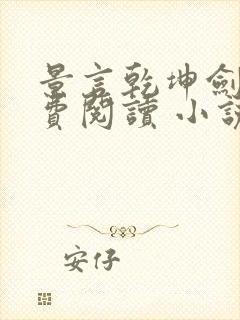 景言乾坤劍
費閱讀 小說
安仔